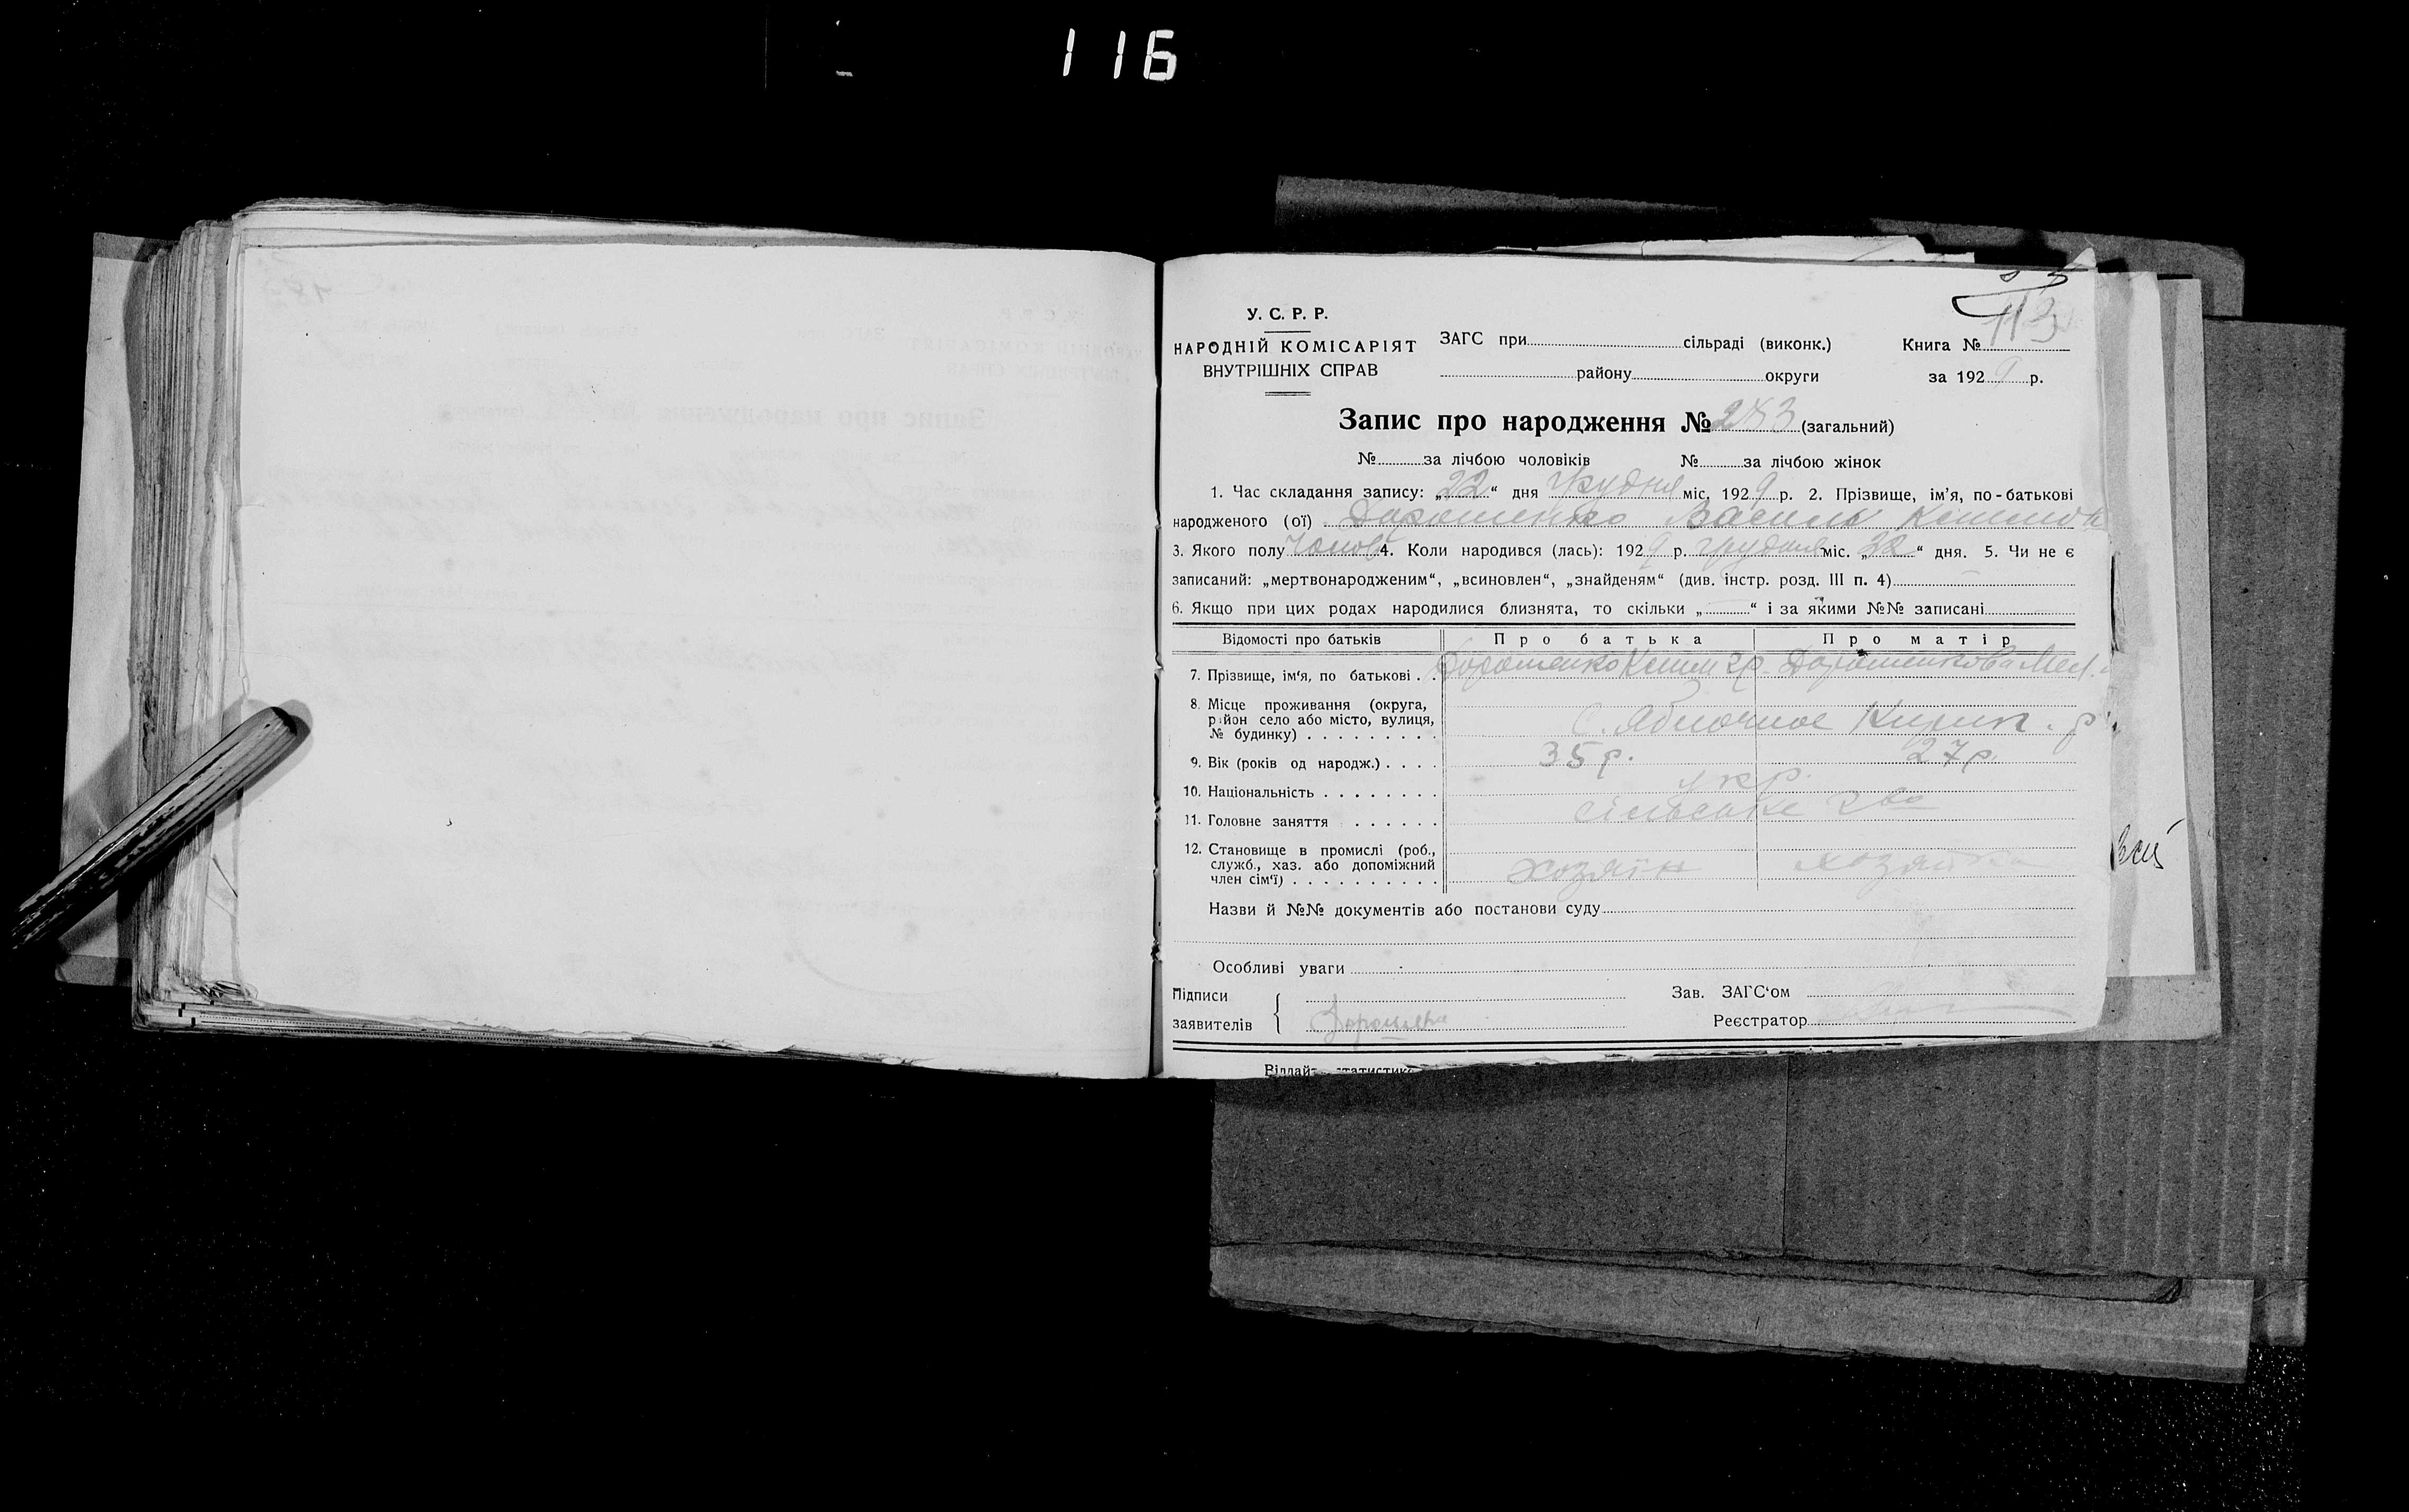 116
113
У. С. Р. Р.
НАРОДНІЙ КОМІСАРІЯТ
ВНУТРІШНІХ СПРАВ
ЗАГС при сільраді (виконк.)
району округи
Книга №
за 1929 р.
Запис про народження № 283 (загальний)
№ за лічбою чоловіків № за лічбою жінок
1. Час складання запису: „22“ дня грудня міс. 1929 р. 2. Прізвище, ім'я, по-батькові
народженого (ої) Дорошенко Василь
3. Якого полу чолов 4. Коли народився (лась): 1929 р. грудня міс. „22“ дня. 5. Чи не є
записаний: „мертвонародженим“, „всиновлен“, „знайденям“ (див. інстр. розд. III п. 4)
6. Якщо при цих родах народилися близнята, то скільки „ “ і за якими №№ записані
Відомості про батьків Про батька Про матір
7. Прізвище, ім'я, по батькові . . Дорошенко гр. Дорошенкова
8. Місце проживання (округа,
район село або місто, вулиця,
№ будинку) . . . . . . . . . С. Яблочное р.
9. Вік (років од народж.) . . . . 35 р. 27 р.
10. Національність . . . . . . . . укр.
11. Головне заняття . . . . . . сільське г-во
12. Становище в промислі (роб.,
служб., хаз. або допоміжний
член сім'ї) . . . . . . . . . . хозяїн хозяйка
Назви й №№ документів або постанови суду
Особливі уваги
Підписи
заявителів
Зав. ЗАГС'ом
Реєстратор